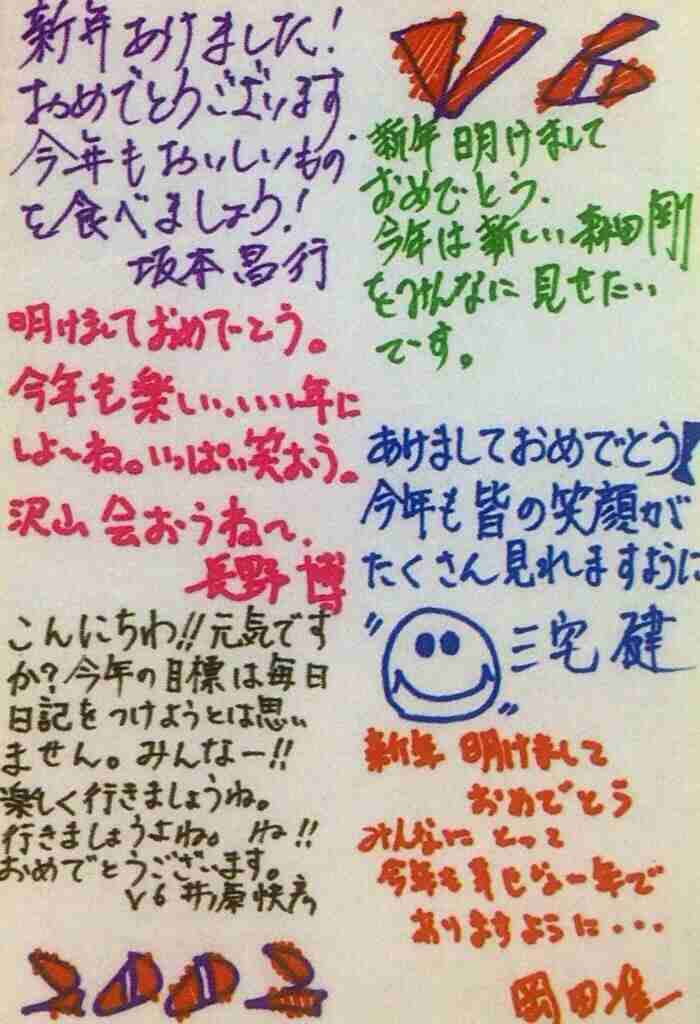 新年あけました!
おめでとうございます。
今年もおいしいもの
を食べましょう!
坂本昌行
明けましておめでーとう。
今年も楽しい、いい年に
しよ〜ね。いっぱい笑おう。
沢山会おうね〜、
長野博
こんにちわ!!元気です
か?今年の目標は毎日
日記をつけようとは思い
ません。みんなー!!
楽しく行きましょうね。
行きましょうよね。ね!!
おめでとうございます。
V6 井ノ原快彦
2002
V6
新年 明けまして
おめでとう、
今年は新しい森田剛
をみんなに見せたい
です。
あけましておめでとう!
今年も皆の笑顔が
たくさん見れますように
三宅健
新年 明けまして
おめでとう
みんなにとって
今年も幸せな一年で
ありますように・・・
岡田准一